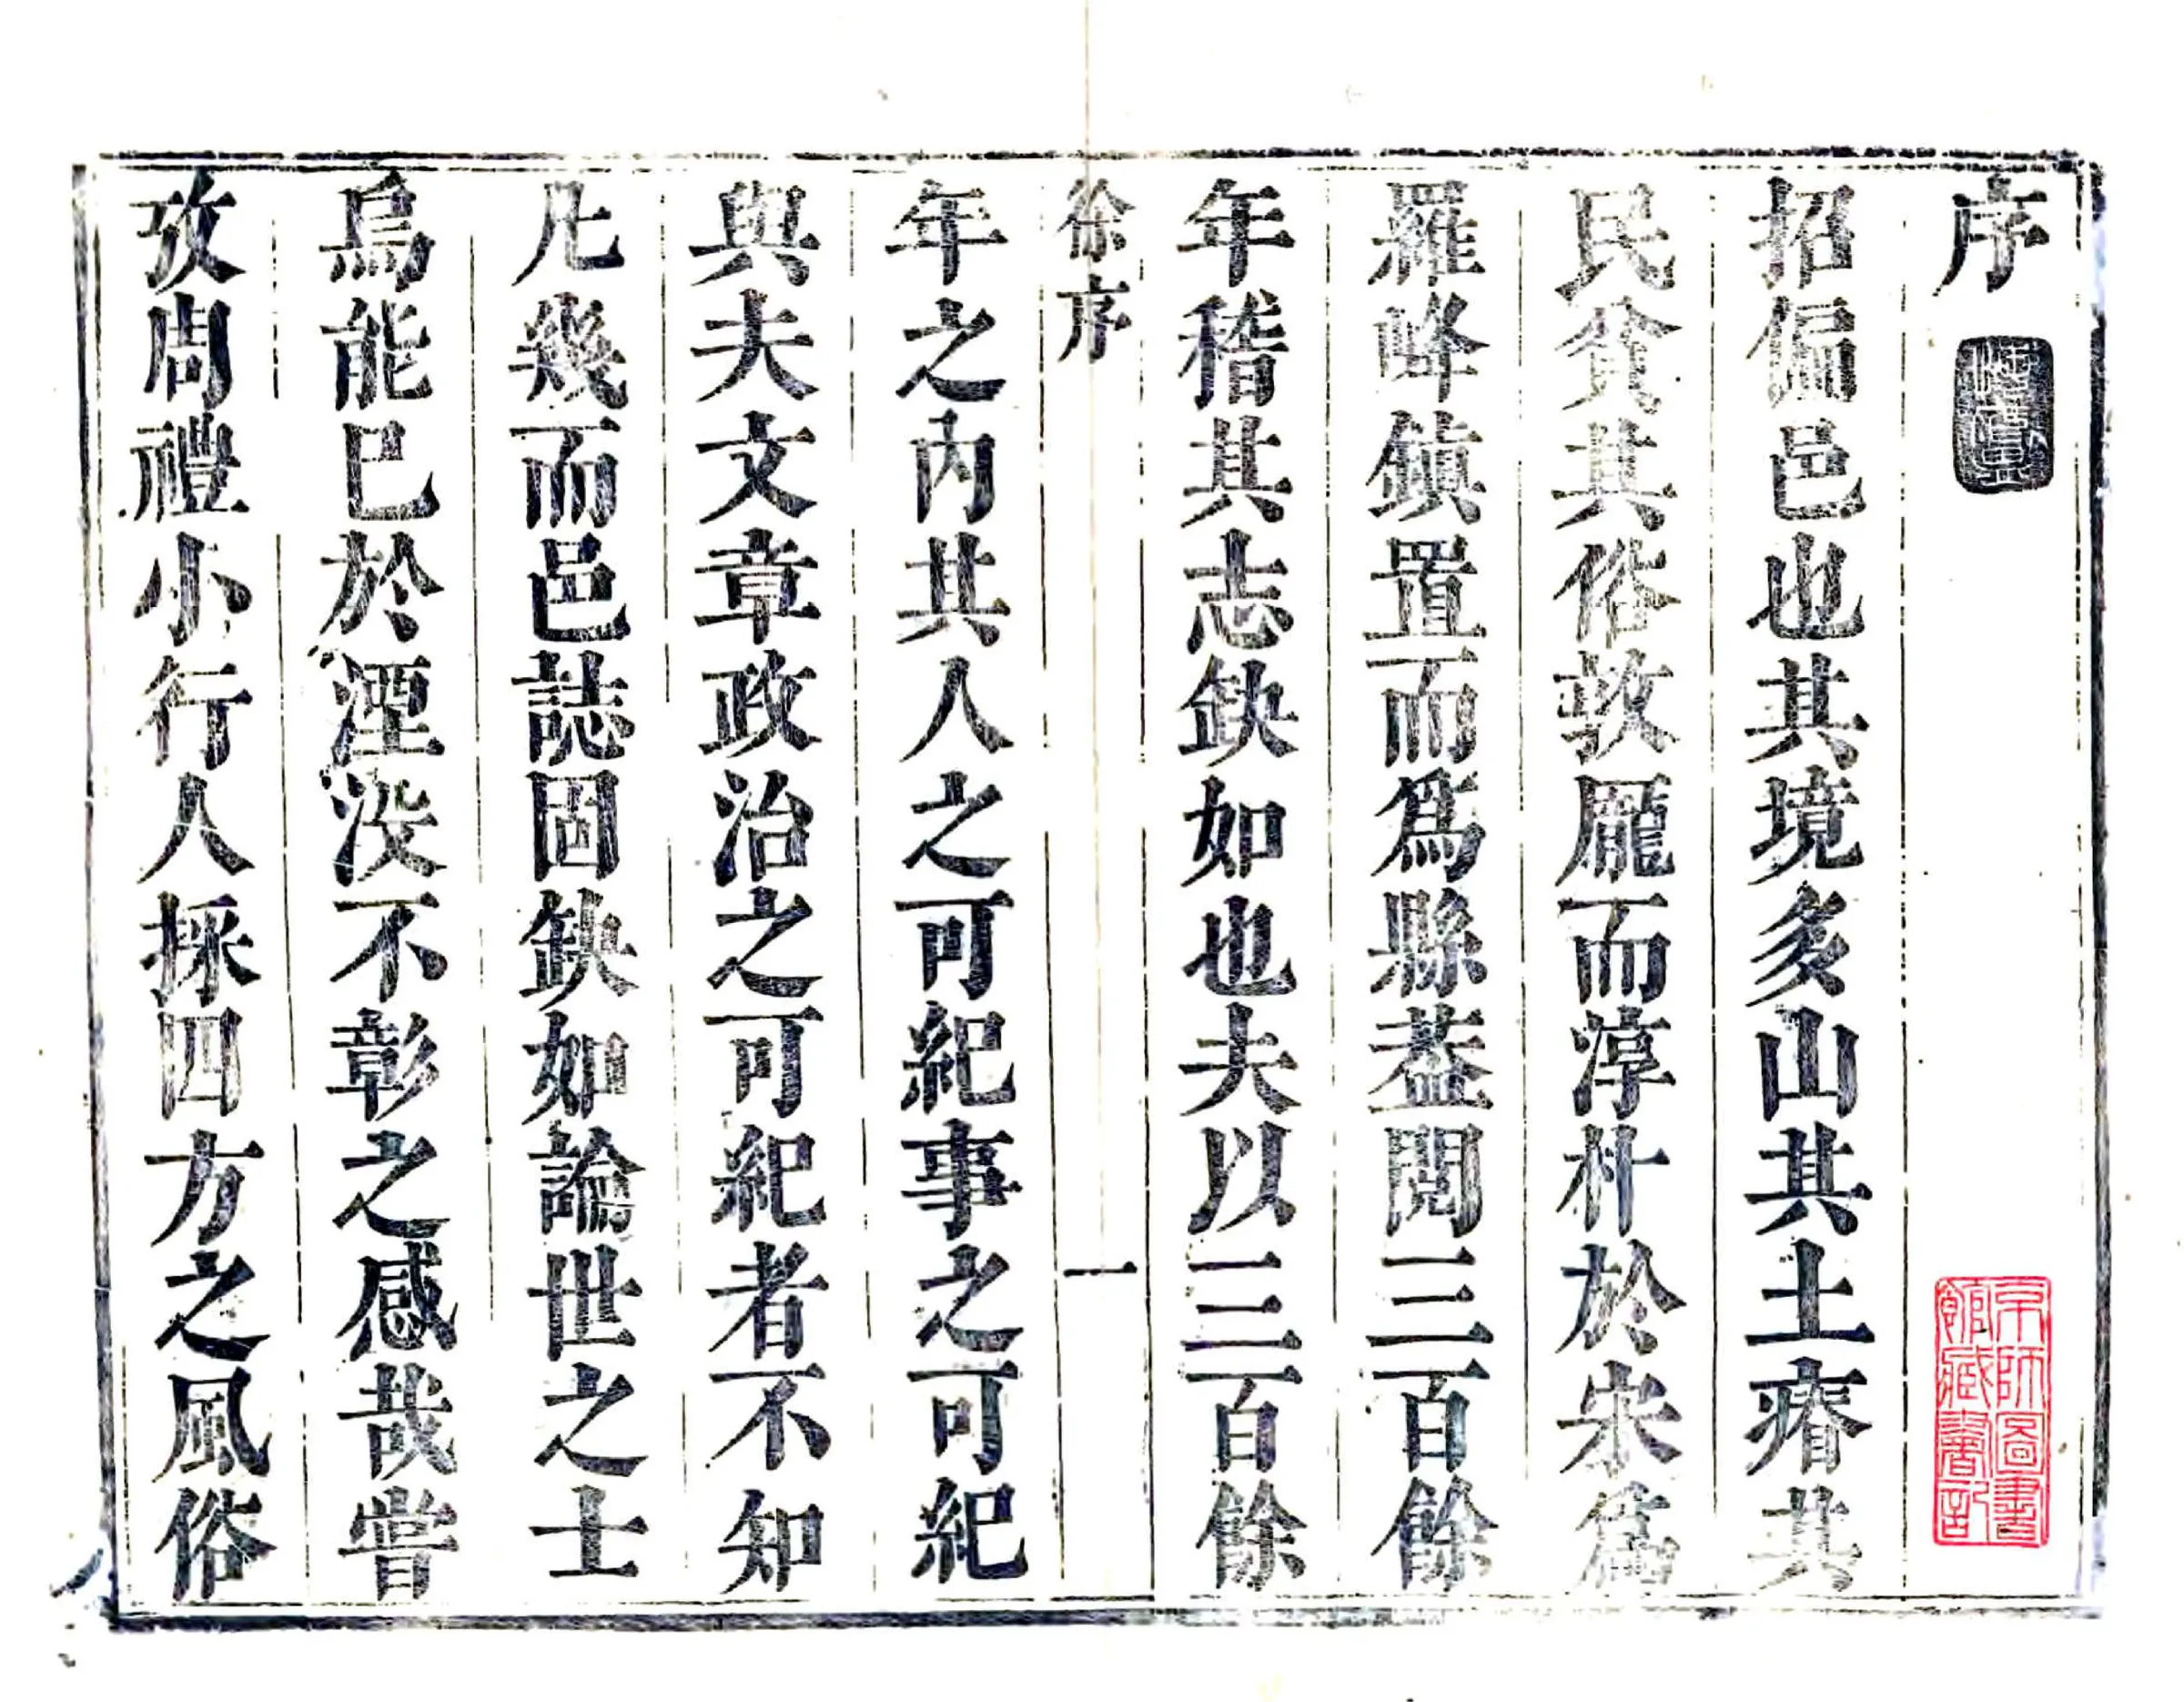 序
招偏邑也其境多山其土瘠其
民貧其俗敦龎而淳朴於宋爲
羅峰鎮置而爲縣葢閱三百餘
年稽其志缺如也夫以三百餘
徐序
一
年之內其人之可紀事之可紀
與夫文章政治之可紀者不知
凡幾而邑誌固缺如論世之士
烏能已於湮没不彰之感哉嘗
攷周禮小行人採四方之風俗
京師圖書
館藏書記